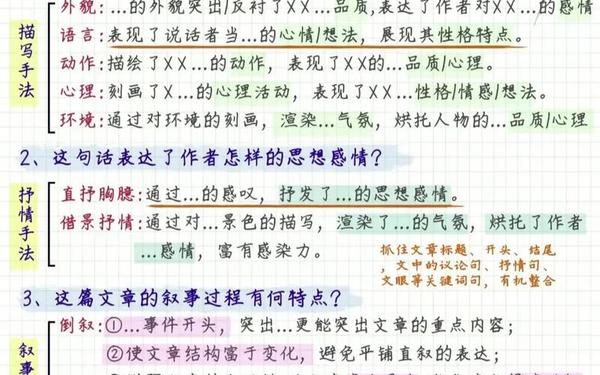 外貌：…的外貌突出/反衬了XX…品质,表达了作者对XX…的感情
描写手法
语言：表现了说话者当…的心情/想法，展现其性格特点。
动作：描绘了XX…的动作，表现了XX的…品质/心理。
心理：刻画了X…的心理活动，表现了XX…性格/情感/想法。
环境：通过对环境的刻画，渲染…气氛，烘托人物的…品质/心理
2、这句话表达了作者怎样的思想感情？
抒情手法
直抒胸臆：通过…的感叹，抒发了…的思想感情。
借景抒情：通过对…景色的描写，渲染了…的气氛，烘托了作者
…感情，富有感染力。
抓住文章标题、开头、结尾
，文中的议论句、抒情句、
文眼等关键词句，有机整合
3、这篇文章的叙事过程有何特点？
叙事
倒叙：①…事件开头，突出…更能突出文章的重点内容；
②使文章结构富于变化，避免平铺直叙的表达；